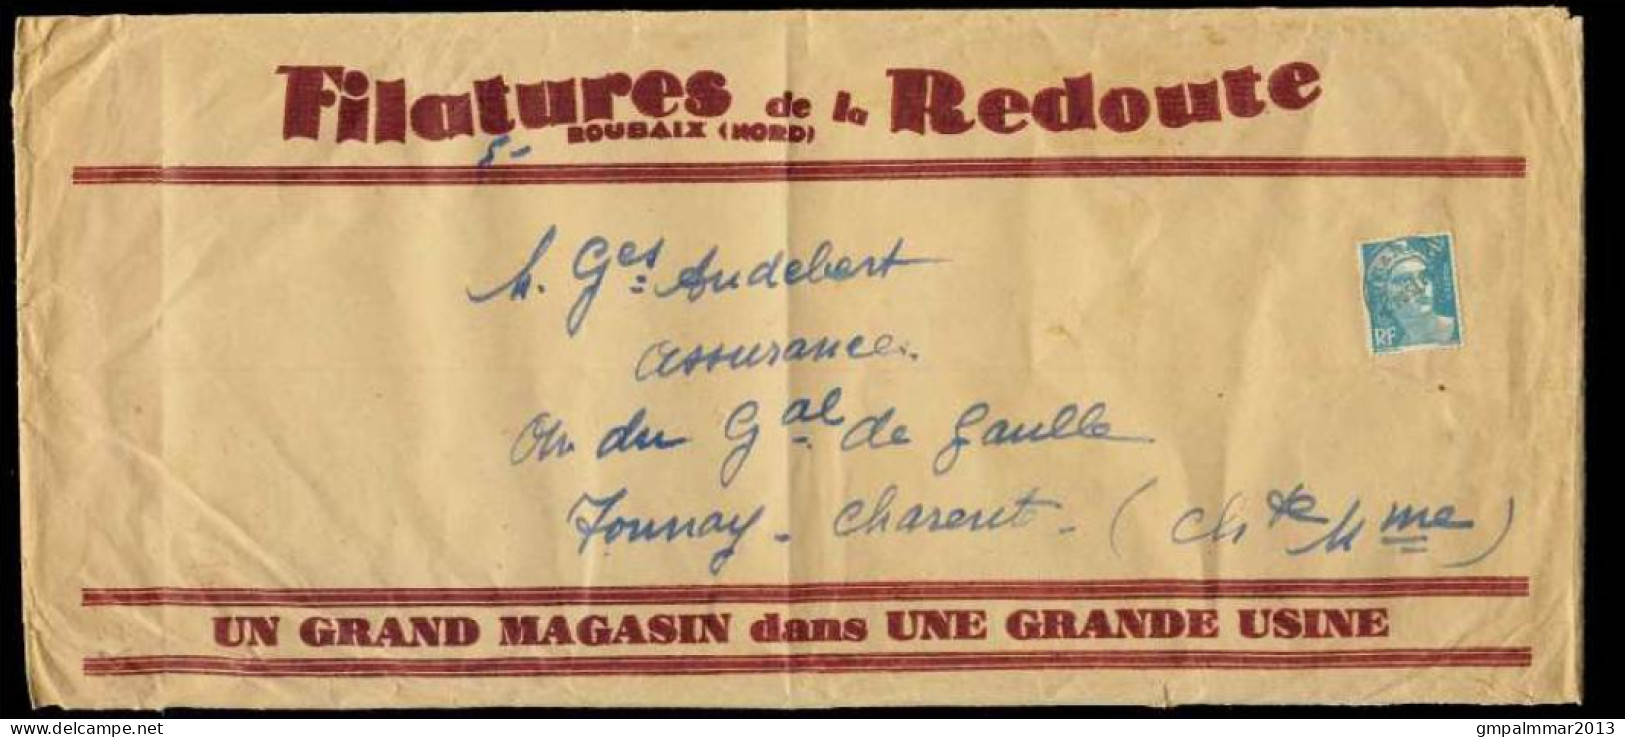 Filatures de la Redoute
ROUBAIX (NORD)
5-
M. Ges Audebert
assurances.
du Gal de Gaulle
Tonnay-Charente-(Chte Mme)
RF
UN GRAND MAGASIN dans UNE GRANDE USINE
gmpalmmar2013